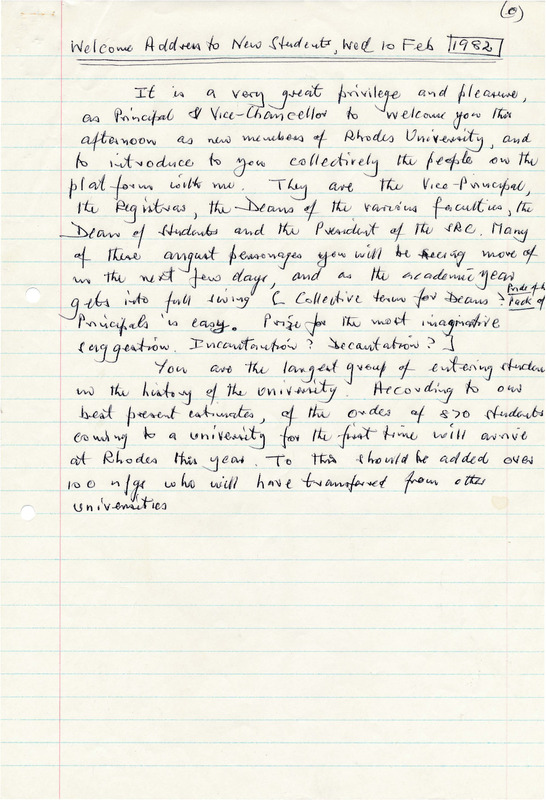 (0)
Welcome Address to New Students, Wed 10 Feb 1982
It is a very great privilege and pleasure,
as Principal & Vice-Chancellor to welcome you this
afternoon as new members of Rhodes University, and
to introduce to you collectively the people on the
platform with me. They are the Vice-Principal,
the Registrar, the Deans of the various faculties, the
Dean of Students and the President of the SRC. Many
of these august personages you will be seeing more of
in the next few days, and as the academic year
gets into full swing [ Collective term for Deans? Pride of
Pack of
Principals is easy. Prize for the most imaginative
suggestion. Incantation? Decantation? ]
You are the largest group of entering students
in the history of the university. According to our
best present estimates, of the order of 870 students
coming to a university for the first time will arrive
at Rhodes this year. To this should be added over
100 u/gs who will have transferred from other
universities